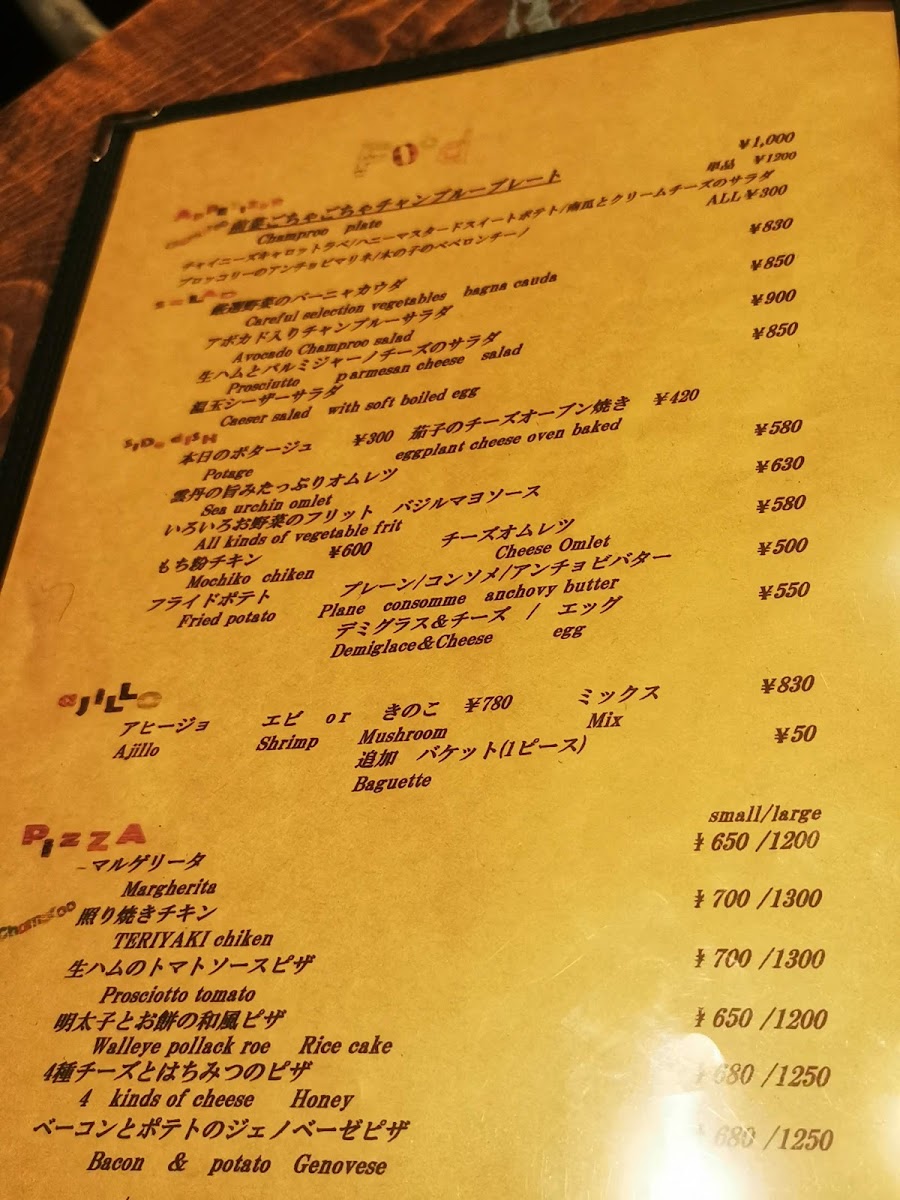 Food
¥1,000
APPETIZER
単品 ¥1200
前菜ごちゃごちゃチャンプループレート
Champroo plate
チャイニーズキャロットラペ/ハニーマスタードスイートポテト/南瓜とクリームチーズのサラダ
ALL¥300
ブロッコリーのアンチョビマリネ/木の子のペペロンチーノ
SALAD
厳選野菜のバーニャカウダ ¥830
Careful selection vegetables bagna cauda
アボカド入りチャンプルーサラダ ¥850
Avocado Champroo salad
生ハムとパルミジャーノチーズのサラダ ¥900
Prosciutto parmesan cheese salad
温玉シーザーサラダ ¥850
Caeser salad with soft boiled egg
SIDe diSH
本日のポタージュ ¥300 茄子のチーズオーブン焼き ¥420
Potage eggplant cheese oven baked
雲丹の旨みたっぷりオムレツ ¥580
Sea urchin omlet
いろいろお野菜のフリット バジルマヨソース ¥630
All kinds of vegetable frit
もち粉チキン ¥600 チーズオムレツ ¥580
Mochiko chiken Cheese Omlet
フライドポテト プレーン/コンソメ/アンチョビバター ¥500
Fried potato Plane consomme anchovy butter
デミグラス&チーズ / エッグ ¥550
Demiglace&Cheese egg
aJILLO
アヒージョ エビ or きのこ ¥780 ミックス ¥830
Ajillo Shrimp Mushroom Mix
追加 バケット(1ピース) ¥50
Baguette
PIZZA
small/large
マルゲリータ ¥650 /1200
Margherita
照り焼きチキン ¥700 /1300
TERIYAKI chiken
生ハムのトマトソースピザ ¥700 /1300
Prosciotto tomato
明太子とお餅の和風ピザ ¥650 /1200
Walleye pollack roe Rice cake
4種チーズとはちみつのピザ ¥680 /1250
4 kinds of cheese Honey
ベーコンとポテトのジェノベーゼピザ ¥680 /1250
Bacon & potato Genovese